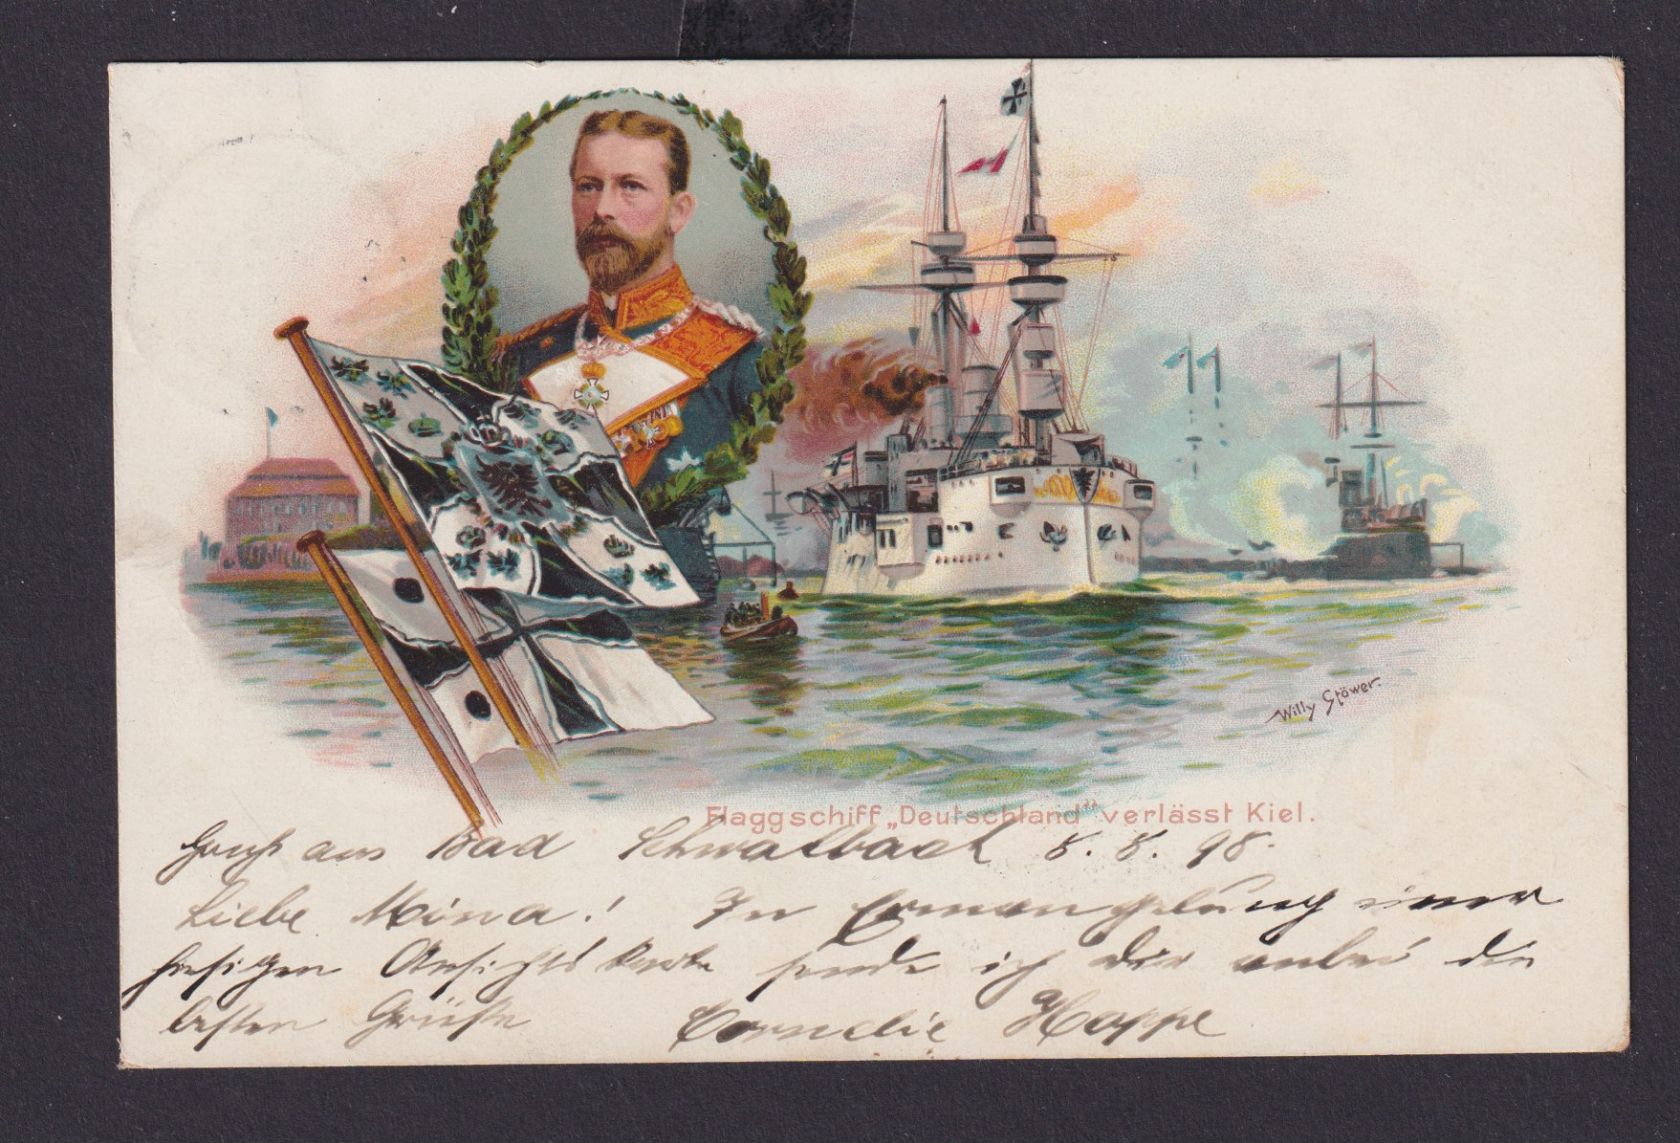 Willy Stöwer.
Flaggschiff „Deutschland“ verlässt Kiel.
Gruß aus Bad Schwalbach 8. 8. 98.
Liebe Mina! In Ermangelung einer
hiesigen Ansichtskarte sende ich dir anbei die
besten Grüße Cornelie Hoppe